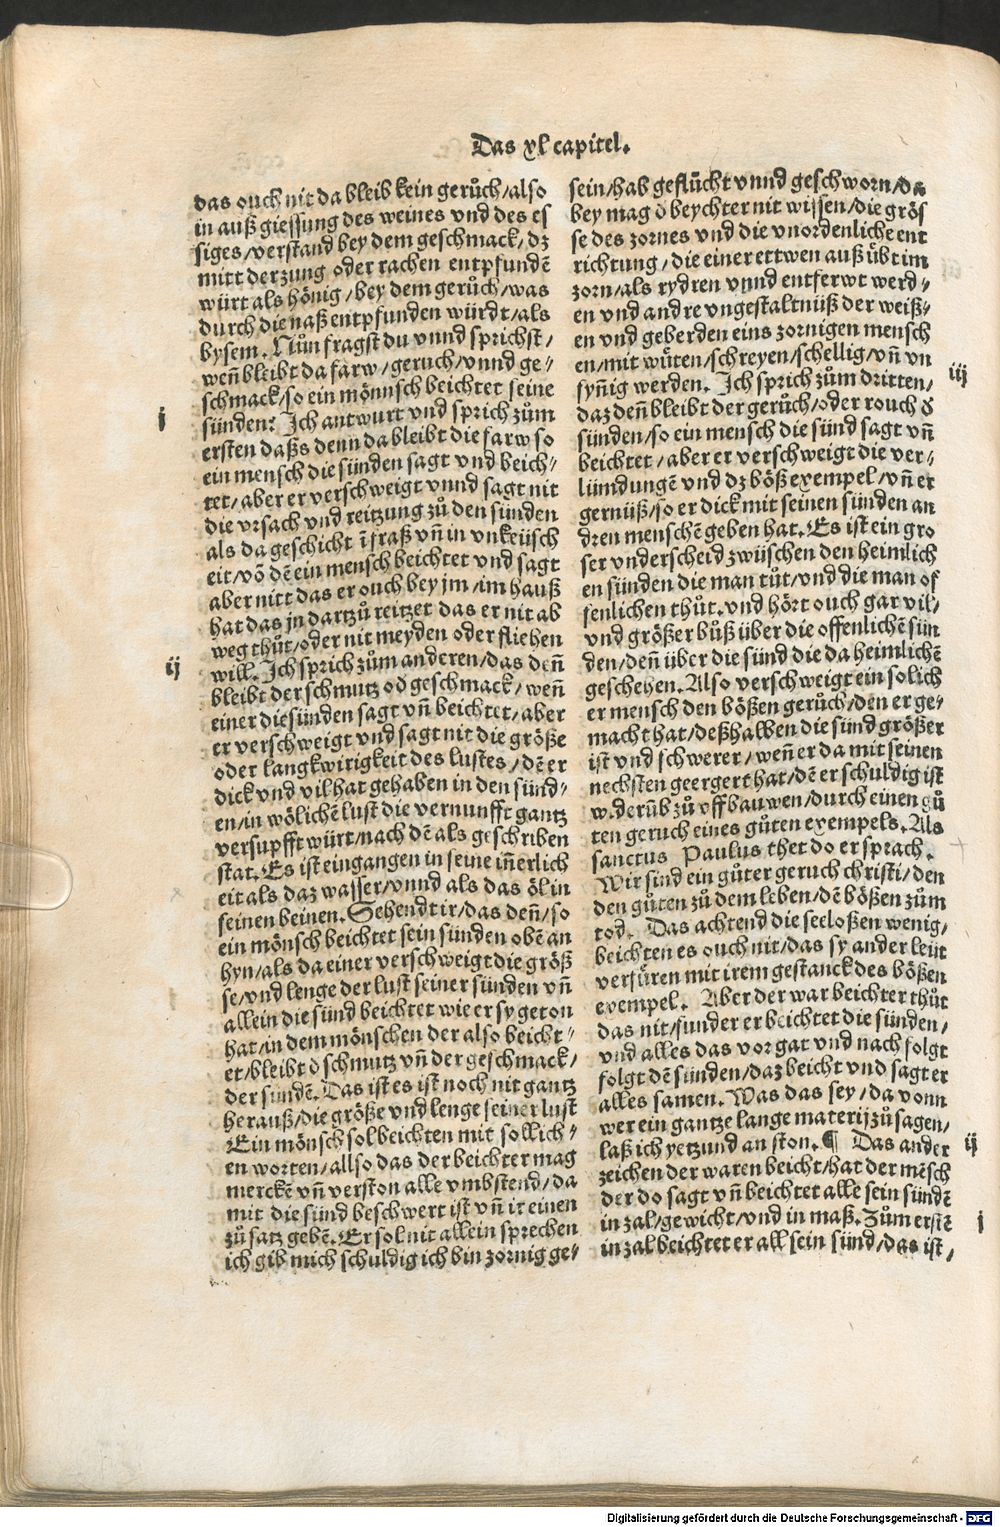 Das xl capitel.
das ouch nit da bleib kein gerůch/also
in auß giessung des weines vnd des es
siges/verstand bey dem geschmack/dz
mitt der zung oder rachen entpfundē
würt als hönig/bey dem gerůch/was
durch die naß entpfunden würdt/als
bysem. Nůn fragst du vnnd sprichst/
weñ bleibt da farw/geruch/vnnd ge-
schmack/so ein mönnsch beichtet seine
sünden: Ich antwurt vnd sprich zům
ersten dasß denn da bleibt die farw so
ein mensch die sünden sagt vnd beich-
tet/aber er verschweigt vnnd sagt nit
die vrsach vnd reitzung zů den sünden
als da geschicht ī fraß vñ in vnkeüsch
eit/vō dē ein mensch beichtet vnd sagt
aber nitt das er ouch bey jm/im hauß
hat das jn dartzů reitzet das er nit ab
weg thůt/oder nit meyden oder fliehen
will. Ich sprich zům anderen/das deñ
bleibt der schmutz od geschmack/weñ
einer die sünden sagt vñ beichtet/aber
er verschweigt vnd sagt nit die größe
oder langkwirigkeit des lustes/dē er
dick vnd vil hat gehaben in den sünd-
en/in wölichē lust die vernunfft gantz
versupfft würt/nach dē als geschriben
stat. Es ist eingangen in seine iñerlich
eit als daz wasser/vnnd als das öl in
seinen beinen. Sehendt ir/das deñ/so
ein mönsch beichtet sein sünden obē an
hyn/als da einer verschweigt die größ
se/vnd lenge der lust seiner sünden vñ
allein die sünd beichtet wie er sy geton
hat/in dem mönschen der also beicht-
et/bleibt ð schmutz vñ der geschmack/
der sundē. Das ist es ist noch nit gantz
herauß/die größe vnd lenge seiner lust
Ein mönsch sol beichten mit sollich-
en worten/allso das der beichter mag
merckē vñ verston alle vmbstend/da
mit die sünd beschwert ist vñ ir einen
zů satz gebē. Er sol nit allein sprechen
ich gib mich schuldig ich bin zornig ge-
j
ij
sein/hab geflůcht vnnd geschworn/da
bey mag ð beychter nit wissen/die grös
se des zornes vnd die vnordenliche ent
richtung/die einer ettwen auß übt im
zorn/als rydren vnnd entferwt werd-
en vnd andre vngestaltnüß der weiß-
en vnd geberden eins zornigen mensch
en/mit wüten/schreyen/schellig/vñ vn
syñig werden. Ich sprich zům dritten/
daz deñ bleibt der gerůch/oder rouch ð
sünden/so ein mensch die sünd sagt vñ
beichtet/aber er verschweigt die ver-
lümdungē vnd dz böß exempel/vñ er
gernüß/so er dick mit seinen sünden an
dren menschē geben hat. Es ist ein gro
ser vnderscheid zwüschen den heimlich
en sünden die man tůt/vnd die man of
fenlichen thůt. vnd hört ouch gar vil/
vnd größer bůß über die offenlichē sün
den/deñ über die sünd die da heimlichē
geschehen. Also verschweigt ein solich
er mensch den bößen gerůch/den er ge-
macht hat/deßhalben die sünd größer
ist vnd schwerer/weñ er da mit seinen
nechsten geergert hat/dē er schuldig ist
widerūb zů vffbauwen/durch einen gů
ten geruch eines gůten exempels. Als
sanctus Paulus thet do er sprach.
Wir sind ein gůter geruch christi/den
den gůten zů dem leben/dē bößen zům
tod. Das achtend die seeloßen wenig/
beichten es ouch nit/das sy ander leüt
verfüren mit irem gestanck des bößen
exempel. Aber der war beichter thůt
das nit/sunder er beichtet die sünden/
vnd alles das vor gat vnd nach folgt
folgt dē sünden/daz beicht vnd sagt er
alles samen. Was das sey/da vonn
wer ein gantze lange materij zů sagen/
laß ich yetzund an ston. ¶ Das ander
zeichen der waren beicht/hat der mēsch
der do sagt vñ beichtet alle sein sündē
in zal/gewicht/vnd in maß. Zům erstē
in zal beichtet er all sein sünd/das ist/
iij
ij
j
Digitalisierung gefördert durch die Deutsche Forschungsgemeinschaft - DFG